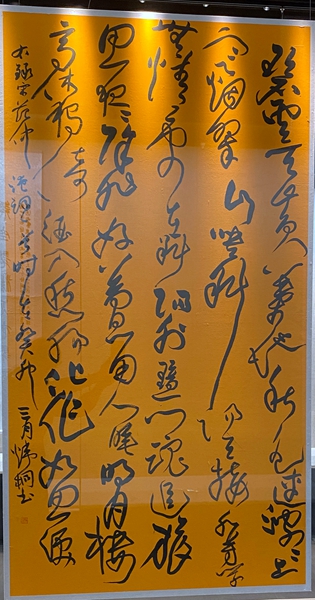 碧雲天黄葉地秋色連波〻上
寒烟翠山映斜陽天接水芳草
無情更在斜陽外黯鄉魂追旅
思夜〻除非好夢留人睡明月樓
高休獨倚酒入愁腸化作相思淚
右録宋范仲淹詞一首時在癸卯三月 書